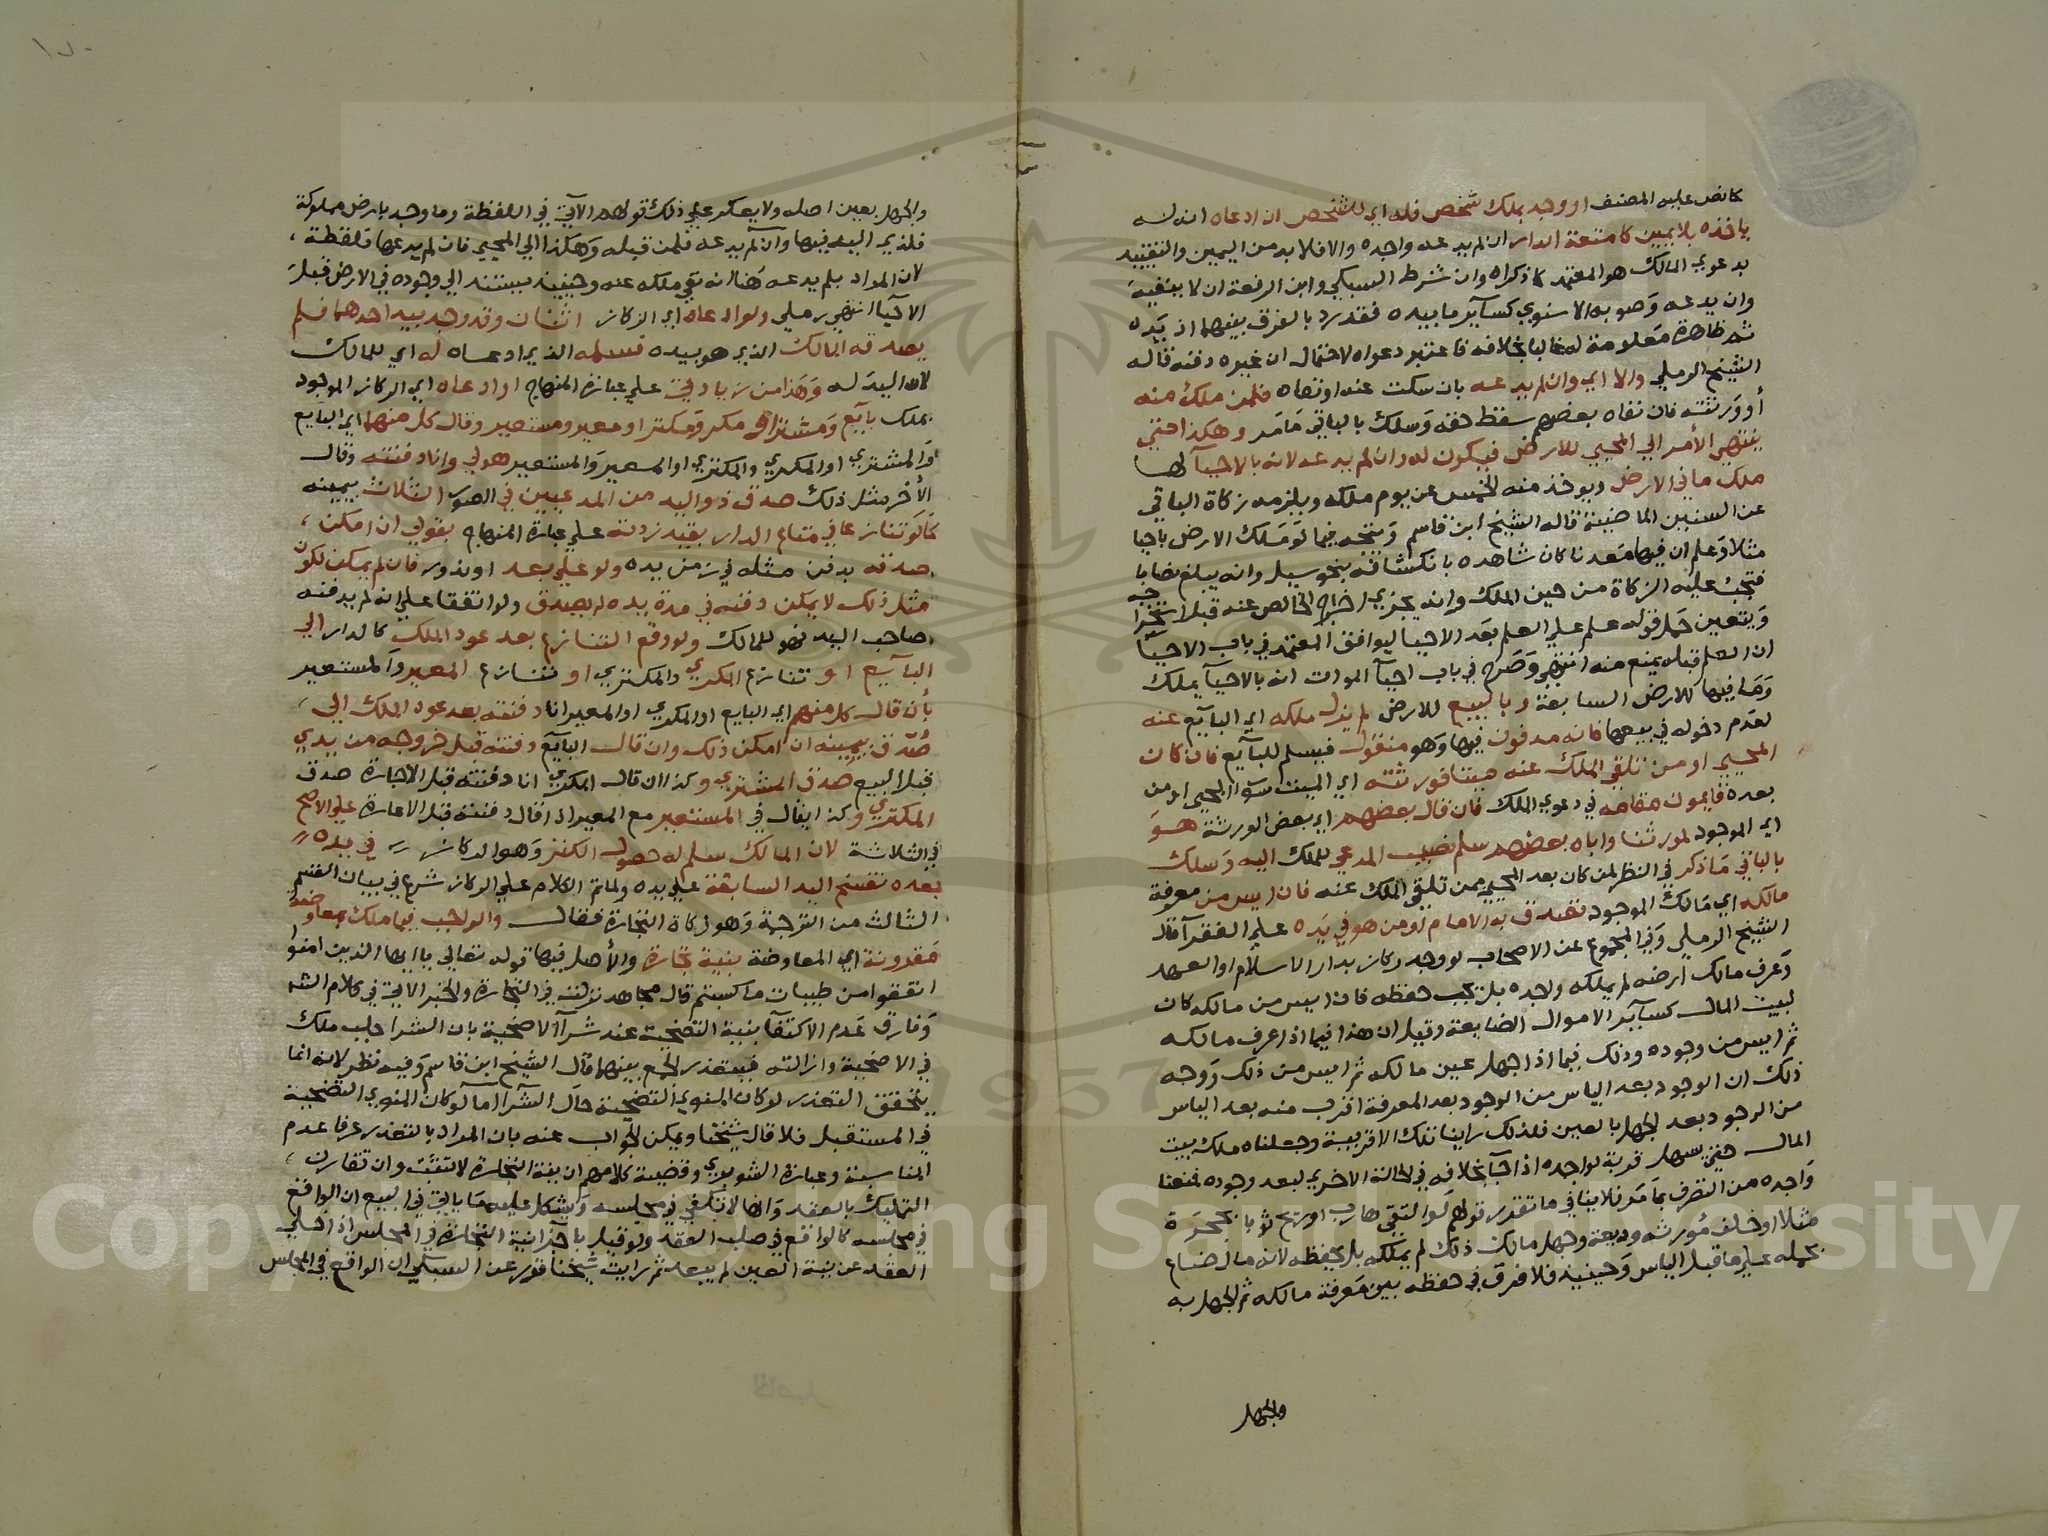 كما نص عليه المصنف او وجد بملك شخص فله اي للشخص ان ادعاه انه له
ياخذه بلا يمين كامتعة الدار ان لم يدعه واجده والا فلا بد من اليمين والتقييد
بدعوي المالك هو المعتمد كما ذكراه وان شرط السبكي وابن الرفعة ان لا ينفيه
وان يدعه وصوبه الاسنوي كسآير ما بيده فقد رد بالفرق بينهما اذ يده
ثم ظاهرة معلومة له غالبا بخلافه فاعتبر دعواه لاحتمال ان غيره دفنه قاله
الشيخ الرملي والا اي وان لم يدعه بان سكت عنه او نفاه فلمن ملك منه
أو ورثته فان نفاه بعضهم سقط حقه وسلك بالباقي ما مر وهكذا حتي
ينتهي الأمر الي المحيي للارض فيكون له وان لم يدعه لانه بالاحيآ لها
ملك ما في الارض ويوخذ منه الخمس عن يوم ملكه ويلزمه زكاة الباقي
عن السنين الماضية قاله الشيخ ابن قاسم ويتجه فيما لو ملك الارض باحيا
مثلا وعلم ان فيها معدنا كان شاهده بانكشافه بنحو سيل وانه يبلغ نصابا
فتجب عليه الزكاة من حين الملك وانه يجزي اخراج الخالص عنه قبل استخراجه
ويتعين حمل قوله علم علي العلم بعد الاحيا ليوافق المعتمد في باب الاحيآ
ان العلم قبله يمنع منه انتهي وصرح في باب احيآ الموات انه بالاحيآ يملك
وما فيها للارض السابعة وبالبيع للارض لم يزل ملكه اي البآيع عنه
لعدم دخوله في بيعها فانه مدفون فيها وهو منقول فيسلم للبآيع فان كان
المحيي او من تلقي الملك عنه ميتا فورثته اي الميت سوآ المحيي او من
بعده قايمون مقامه في دعوي الملك فان قال بعضهم اي بعض الورثة هو
اي الموجود لمورثنا واباه بعضهم سلم نصيب المدعي للملك اليه وسلك
بالباقي ما ذكر في النظر لمن كان بعد المحيي ممن تلقي الملك عنه فان ايس من معرفة
مالكه اي مالك الموجود تصدق به الامام او من هو في يده علي الفقرآ قال
الشيخ الرملي وفي المجموع عن الاصحاب لو وجد ركاز بدار الاسلام او العهد
وعرف مالك ارضه لم يملكه واجده بل يجب حفظه فان ايس من مالكه كان
لبيت المال كسآير الاموال الضايعة وقيل ان هذا فيما اذا عرف مالكه
ثم ايس من وجوده وذلك فيما اذا جهل عين مالكه ثم ايس من ذلك ووجه
ذلك ان الوجود بعد الياس من الوجود بعد المعرفة اقرب منه بعد الياس
من الوجود بعد الجهل بالعين فلذلك راينا تلك الاقربية وجعلناه ملك بيت
المال حتي يسهل قربة لواجده اذا جآ بخلافه في الحالة الاخري لبعد وجوده فمنعنا
واجده من التصرف بما مر فلا ينافي ما تقدر قولهم لو القي هارب او ريح ثوبا بحجره
مثلا او خلف مورثه وديعة وجهل مالك ذلك لم يملكه بل يحفظه لانه مال ضايع
بحمله علي ما قبل الياس وحينيذ فلا فرق في حفظه بين معرفة مالكه ثم الجهل به
والجهل
والجهل بعين اصله ولا يعكر علي ذلك قولهم الآتي في اللقطة وما وجد بارض مملوكة
فلذي اليد فيها وان لم يدعه فلمن قبله وهكذا الي المحيي فان لم يدعها فلقطة
لان المراد بلم يدعه هنا انه نفي ملكه عنه وحينيذ يستند الي وجوده في الارض قبل
الاحيآ انتهي رملي ولو ادعاه اي الركاز اثنان وقد وجد بيد احدهما فلم
يصدقه المالك الذي هو بيده فسلمه الذي ادعاه له اي للمالك
لان اليد له وهذا من زيادتي علي عبارة المنهاج او ادعاه اي الركاز الموجود
بملك بايع ومشتر او مكر ومكتر او معير ومستعير وقال كل منهما اي البايع
والمشتري او المكري والمكتري او المعير والمستعير هو لي وانا دفنته وقال
الأخر مثل ذلك صدق ذو اليد من المدعيين في الصور الثلاث بيمينه
كما لو تنازعا في متاع الدار بقيد زدته علي عبارة المنهاج بقولي ان امكن
صدقه بدفن مثله في زمن يده ولو علي بعد او ندور فان لم يمكن لكون
مثل ذلك لا يمكن دفنه في مدة يده لم يصدق ولو اتفقا علي انه لم يدفنه
صاحب اليد فهو للمالك ولو وقع التنازع بعد عود الملك كالدار الي
البآيع او تنازع المكري والمكتري او تنازع المعير والمستعير
بأن قال كل منهم اي البايع او المكري او المعير انا دفنته بعد عود الملك الي
صدق بيمينه ان امكن ذلك وان قال البآيع دفنته قبل خروجه من يدي
قبل البيع صدق المشتري وكذا ان قال المكري انا دفنته قبل الاجارة صدق
المكتري وكذا يقال في المستعير مع المعير اذا قال دفنته قبل الاعارة علي الاصح
في الثلاثة لان المالك سلم له حصول الكنز وهو الركاز في يده
بعده تنسخ اليد السابقة علي يده ولما تم الكلام علي الركاز شرع في بيان القسم
الثالث من الترجمة وهو زكاة التجارة فقال والواجب فيما ملك بمعاوضة
مقرونة اي المعاوضة بنية تجارة والأصل فيها قوله تعالي يا ايها الذين امنوا
انفقوا من طيبات ما كسبتم قال مجاهد نزلت في التجارة والخبر الاتي في كلام الشه
وفارق عدم الاكتفآ بنية التضحية عند شرآ الاضحية بان الشرا جلب ملك
في الاضحية وازالته فيتعذر الجمع بينهما قال الشيخ ابن قاسم وفيه نظر لانه انما
يتحقق التعذر لو كان المنوي التضحية حال الشرآ اما لو كان المنوي التضحية
في المستقبل فلا قال شيخنا ويمكن الجواب عنه بان المراد بالتعذر عرفا عدم
المناسبة وعبارة الشوبري وقضية كلامهم ان نية التجارة لا تثبت وان تقارن
التمليك بالعقد وانها لا تكفي في مجلسه ويشكل عليه ما ياتي في البيع ان الواقع
في مجلسه كالواقع في صلب العقد ولو قيل باجزآ نية التجارة في المجلس اذا خلي
العقد عن نية العين لم يبعد ثم رايت شيخنا قور عن السبكي ان الواقع في المجلس